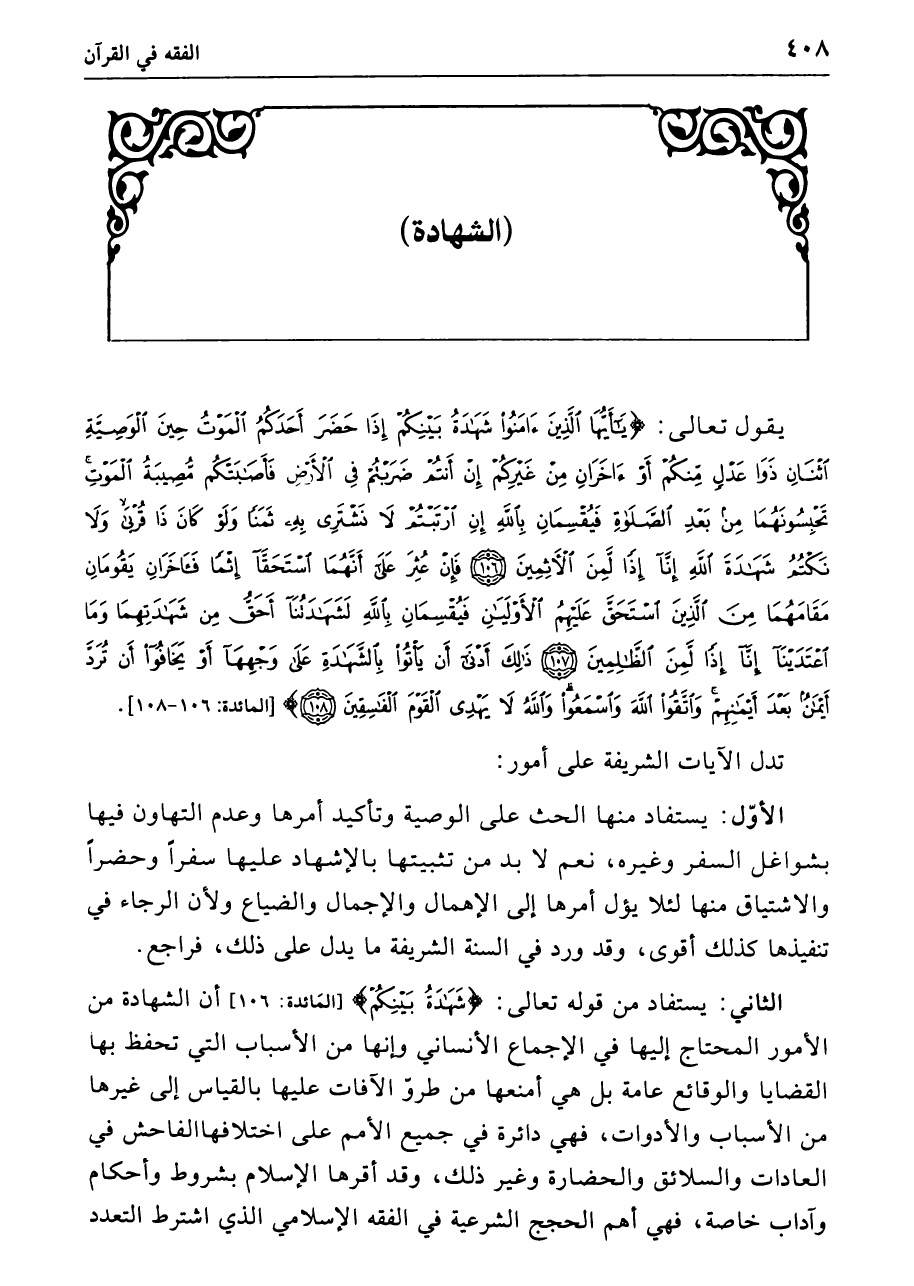 ٤٠٨ الفقه في القرآن
(الشهادة)
يقول تعالى: ﴿يَٰٓأَيُّهَا ٱلَّذِينَ ءَامَنُوا۟ شَهَٰدَةُ بَيْنِكُمْ إِذَا حَضَرَ أَحَدَكُمُ ٱلْمَوْتُ حِينَ ٱلْوَصِيَّةِ
ٱثْنَانِ ذَوَا عَدْلٍ مِّنكُمْ أَوْ ءَاخَرَانِ مِنْ غَيْرِكُمْ إِنْ أَنتُمْ ضَرَبْتُمْ فِى ٱلْأَرْضِ فَأَصَٰبَتْكُم مُّصِيبَةُ ٱلْمَوْتِ ۚ
تَحْبِسُونَهُمَا مِنۢ بَعْدِ ٱلصَّلَوٰةِ فَيُقْسِمَانِ بِٱللَّهِ إِنِ ٱرْتَبْتُمْ لَا نَشْتَرِى بِهِۦ ثَمَنًا وَلَوْ كَانَ ذَا قُرْبَىٰ ۙ وَلَا
نَكْتُمُ شَهَٰدَةَ ٱللَّهِ إِنَّآ إِذًا لَّمِنَ ٱلْءَاثِمِينَ ۝١٠٦ فَإِنْ عُثِرَ عَلَىٰٓ أَنَّهُمَا ٱسْتَحَقَّآ إِثْمًا فَـَٔاخَرَانِ يَقُومَانِ
مَقَامَهُمَا مِنَ ٱلَّذِينَ ٱسْتَحَقَّ عَلَيْهِمُ ٱلْأَوْلَيَٰنِ فَيُقْسِمَانِ بِٱللَّهِ لَشَهَٰدَتُنَآ أَحَقُّ مِن شَهَٰدَتِهِمَا وَمَا
ٱعْتَدَيْنَآ إِنَّآ إِذًا لَّمِنَ ٱلظَّٰلِمِينَ ۝١٠٧ ذَٰلِكَ أَدْنَىٰٓ أَن يَأْتُوا۟ بِٱلشَّهَٰدَةِ عَلَىٰ وَجْهِهَآ أَوْ يَخَافُوٓا۟ أَن تُرَدَّ
أَيْمَٰنٌۢ بَعْدَ أَيْمَٰنِهِمْ ۗ وَٱتَّقُوا۟ ٱللَّهَ وَٱسْمَعُوا۟ ۗ وَٱللَّهُ لَا يَهْدِى ٱلْقَوْمَ ٱلْفَٰسِقِينَ ۝١٠٨﴾ [المائدة: ١٠٦-١٠٨].
تدل الآيات الشريفة على أمور:
الأوّل: يستفاد منها الحث على الوصية وتأكيد أمرها وعدم التهاون فيها
بشواغل السفر وغيره، نعم لا بد من تثبيتها بالإشهاد عليها سفراً وحضراً
والاشتياق منها لئلا يؤل أمرها إلى الإهمال والإجمال والضياع ولأن الرجاء في
تنفيذها كذلك أقوى، وقد ورد في السنة الشريفة ما يدل على ذلك، فراجع.
الثاني: يستفاد من قوله تعالى: ﴿شَهَٰدَةُ بَيْنِكُمْ﴾ [المَائدة: ١٠٦] أن الشهادة من
الأمور المحتاج إليها في الإجماع الأنساني وإنها من الأسباب التي تحفظ بها
القضايا والوقائع عامة بل هي أمنعها من طروّ الآفات عليها بالقياس إلى غيرها
من الأسباب والأدوات، فهي دائرة في جميع الأمم على اختلافهاالفاحش في
العادات والسلائق والحضارة وغير ذلك، وقد أقرها الإسلام بشروط وأحكام
وآداب خاصة، فهي أهم الحجج الشرعية في الفقه الإسلامي الذي اشترط التعدد